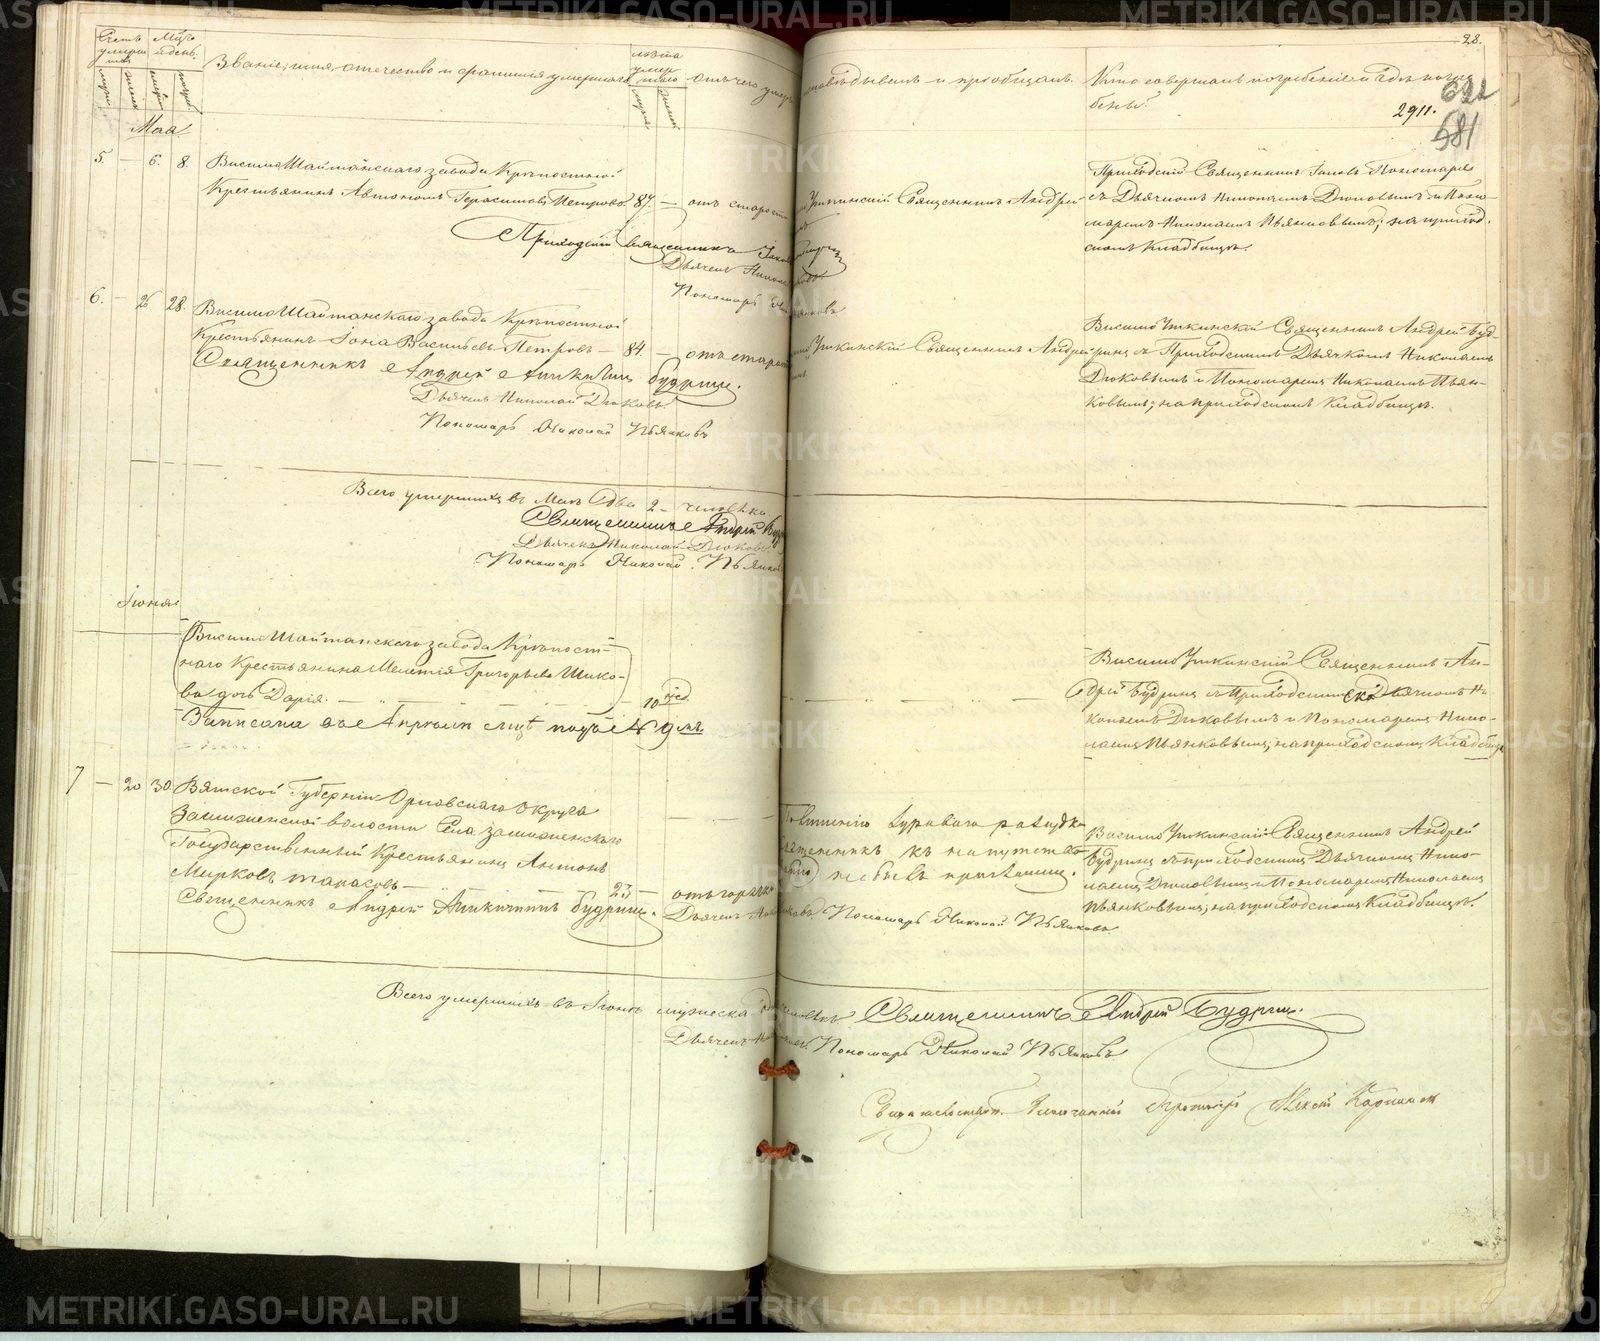 28.
622
581
2911.
Счетъ умершихъ
Мѣсяцъ и день.
Званіе, имя, отечество и фамилія умершаго
лѣта умершаго
отъ чего умеръ
исповѣдывалъ и пріобщалъ.
Кто совершалъ погребеніе и гдѣ погребены?
Маія
5. — 6. 8. Висимо Шайтанскаго завода Крѣпостной
Крестьянинъ Автономъ Герасимовъ Петровъ. 87. — отъ старости
Уткинскій Священникъ Андрей
Приходскій Священникъ Іаковъ Пономаревъ
съ Дьячкомъ Николаемъ Дюковымъ и Поно-
маремъ Николаемъ Пьянковымъ; на приход-
скомъ Кладбищѣ.
Приходскій Священникъ Іаковъ
Дьячекъ Николай
Пономарь Николай Пьянковъ
6. — 26 28. Висимо Шайтанскаго завода Крѣпостной
Крестьянинъ Іона Васильевъ Петровъ — 84. — отъ старости
Уткинскій Священникъ Андрей
Висимо Уткинскій Священникъ Андрей Буд-
ринъ съ Приходскимъ Дьячкомъ Николаемъ
Дюковымъ и Пономаремъ Николаемъ Пьян-
ковымъ; на приходскомъ Кладбищѣ.
Священникъ Андрей Будринъ.
Дьячекъ Николай Дюковъ.
Пономарь Николай Пьянковъ
Всего умершихъ въ Маѣ два 2 человѣка
Священникъ Андрей Будринъ
Дьячекъ Николай Дюковъ
Пономарь Николай Пьянковъ
Іюня
Висимо Шайтанскаго завода Крѣпост-
наго Крестьянина Мелетія Григорьева Шико-
ва дочь Дарія. — 10 нед.
Записана въ Апрѣлѣ мцѣ подъ № 9 мъ.
Висимо Уткинскій Священникъ Ан-
дрей Будринъ съ Приходскимъ Дьячкомъ Ни-
колаемъ Дюковымъ и Пономаремъ Нико-
лаемъ Пьянковымъ; на приходскомъ Кладбищѣ
7 — 20 30 Вятской Губерніи Орловскаго Округа
волости Села
Государственный Крестьянинъ Антонъ
Мирковъ Тарасовъ — 23 — отъ горячки
Священникъ Андрей Будринъ.
Дьячекъ
Пономарь Николай Пьянковъ
священникъ къ напутствованію не былъ приглашенъ.
Висимо Уткинскій Священникъ Андрей
Будринъ съ приходскимъ Дьячкомъ Нико-
лаемъ Дюковымъ и Пономаремъ Николаемъ
Пьянковымъ; на приходскомъ Кладбищѣ.
Всего умершихъ въ Іюнѣ мужеска человѣкъ. Священникъ Андрей Будринъ.
Дьячекъ Пономарь Николай Пьянковъ
Протоіерей Алексѣй Карпинск
METRIKI.GASO-URAL.RU